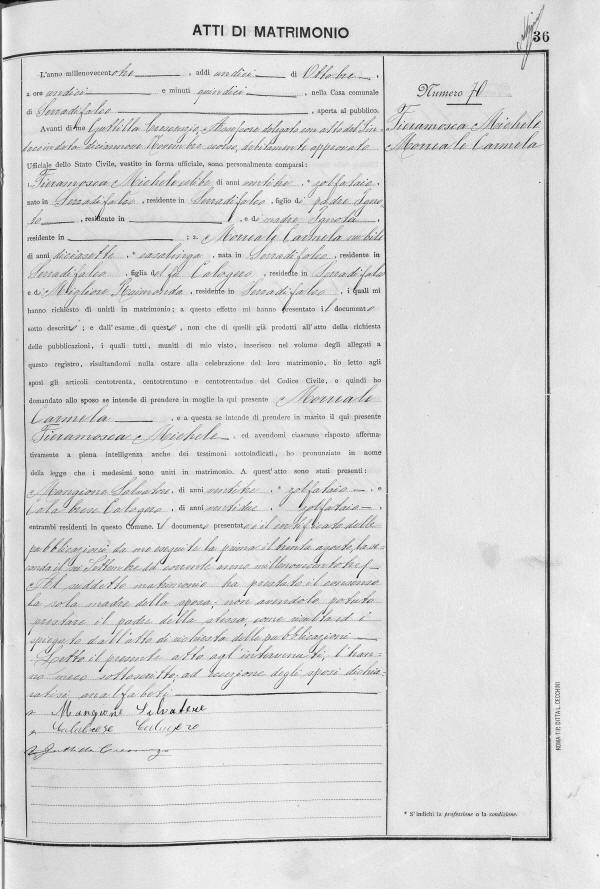 ATTI DI MATRIMONIO
36
L'anno millenovecento tre, addì undici di Ottobre,
a ore undici e minuti quindici, nella Casa comunale
di Serradifalco, aperta al pubblico.
Avanti di me Guttilla Crescenzio, Assessore delegato con atto del Sin-
daco in data diciannove Novembre scorso, debitamente approvato
Ufficiale dello Stato Civile, vestito in forma ufficiale, sono personalmente comparsi:
Fieramosca Michele celibe, di anni ventitre, zolfataio,
nato in Serradifalco, residente in Serradifalco, figlio di padre Igno
to, residente in, e di madre Ignota,
residente in; 2. Morreale Carmela nubile
di anni diciasette, casalinga, nata in Serradifalco, residente in
Serradifalco, figlia del fu Calogero, residente in Serradifalco
e di Migliore Raimonda, residente in Serradifalco, i quali mi
hanno richiesto di unirli in matrimonio; a questo effetto mi hanno presentato il documento
sotto descritto; e dall'esame di questo, non che di quelli già prodotti all'atto della richiesta
delle pubblicazioni, i quali tutti, muniti di mio visto, inserisco nel volume degli allegati a
questo registro, risultandomi nulla ostare alla celebrazione del loro matrimonio, ho letto agli
sposi gli articoli centotrenta, centotrentuno e centotrentadue del Codice Civile, e quindi ho
domandato allo sposo se intende di prendere in moglie la qui presente Morreale
Carmela, e a questa se intende di prendere in marito il qui presente
Fieramosca Michele, ed avendomi ciascuno risposto afferma-
tivamente a piena intelligenza anche dei testimoni sottoindicati, ho pronunziato in nome
della legge che i medesimi sono uniti in matrimonio. A quest'atto sono stati presenti:
Mangione Salvatore, di anni ventitre, zolfataio, e
Calabrese Calogero, di anni ventidue, zolfataio,
entrambi residenti in questo Comune. Il documento presentato è il certificato delle
pubblicazioni da me eseguite la prima il trenta agosto, la se-
conda il sei Settembre del corrente anno millenovecentotre
Al suddetto matrimonio ha prestato il consenso
la sola madre della sposa; non avendolo potuto
prestare il padre della stessa, come risulta ed è
spiegato dall'atto di richiesta delle pubblicazioni
Letto il presente atto agl'intervenuti, l'han-
no meco sottoscritto, ad eccezione degli sposi dichia-
ratisi analfabeti
Mangione Salvatore
Calabrese Calogero
Guttilla Crescenzio
Numero 70
Fieramosca Michele
Morreale Carmela
* S'indichi la professione o la condizione.
ROMA TIP. DITTA L. CECCHINI